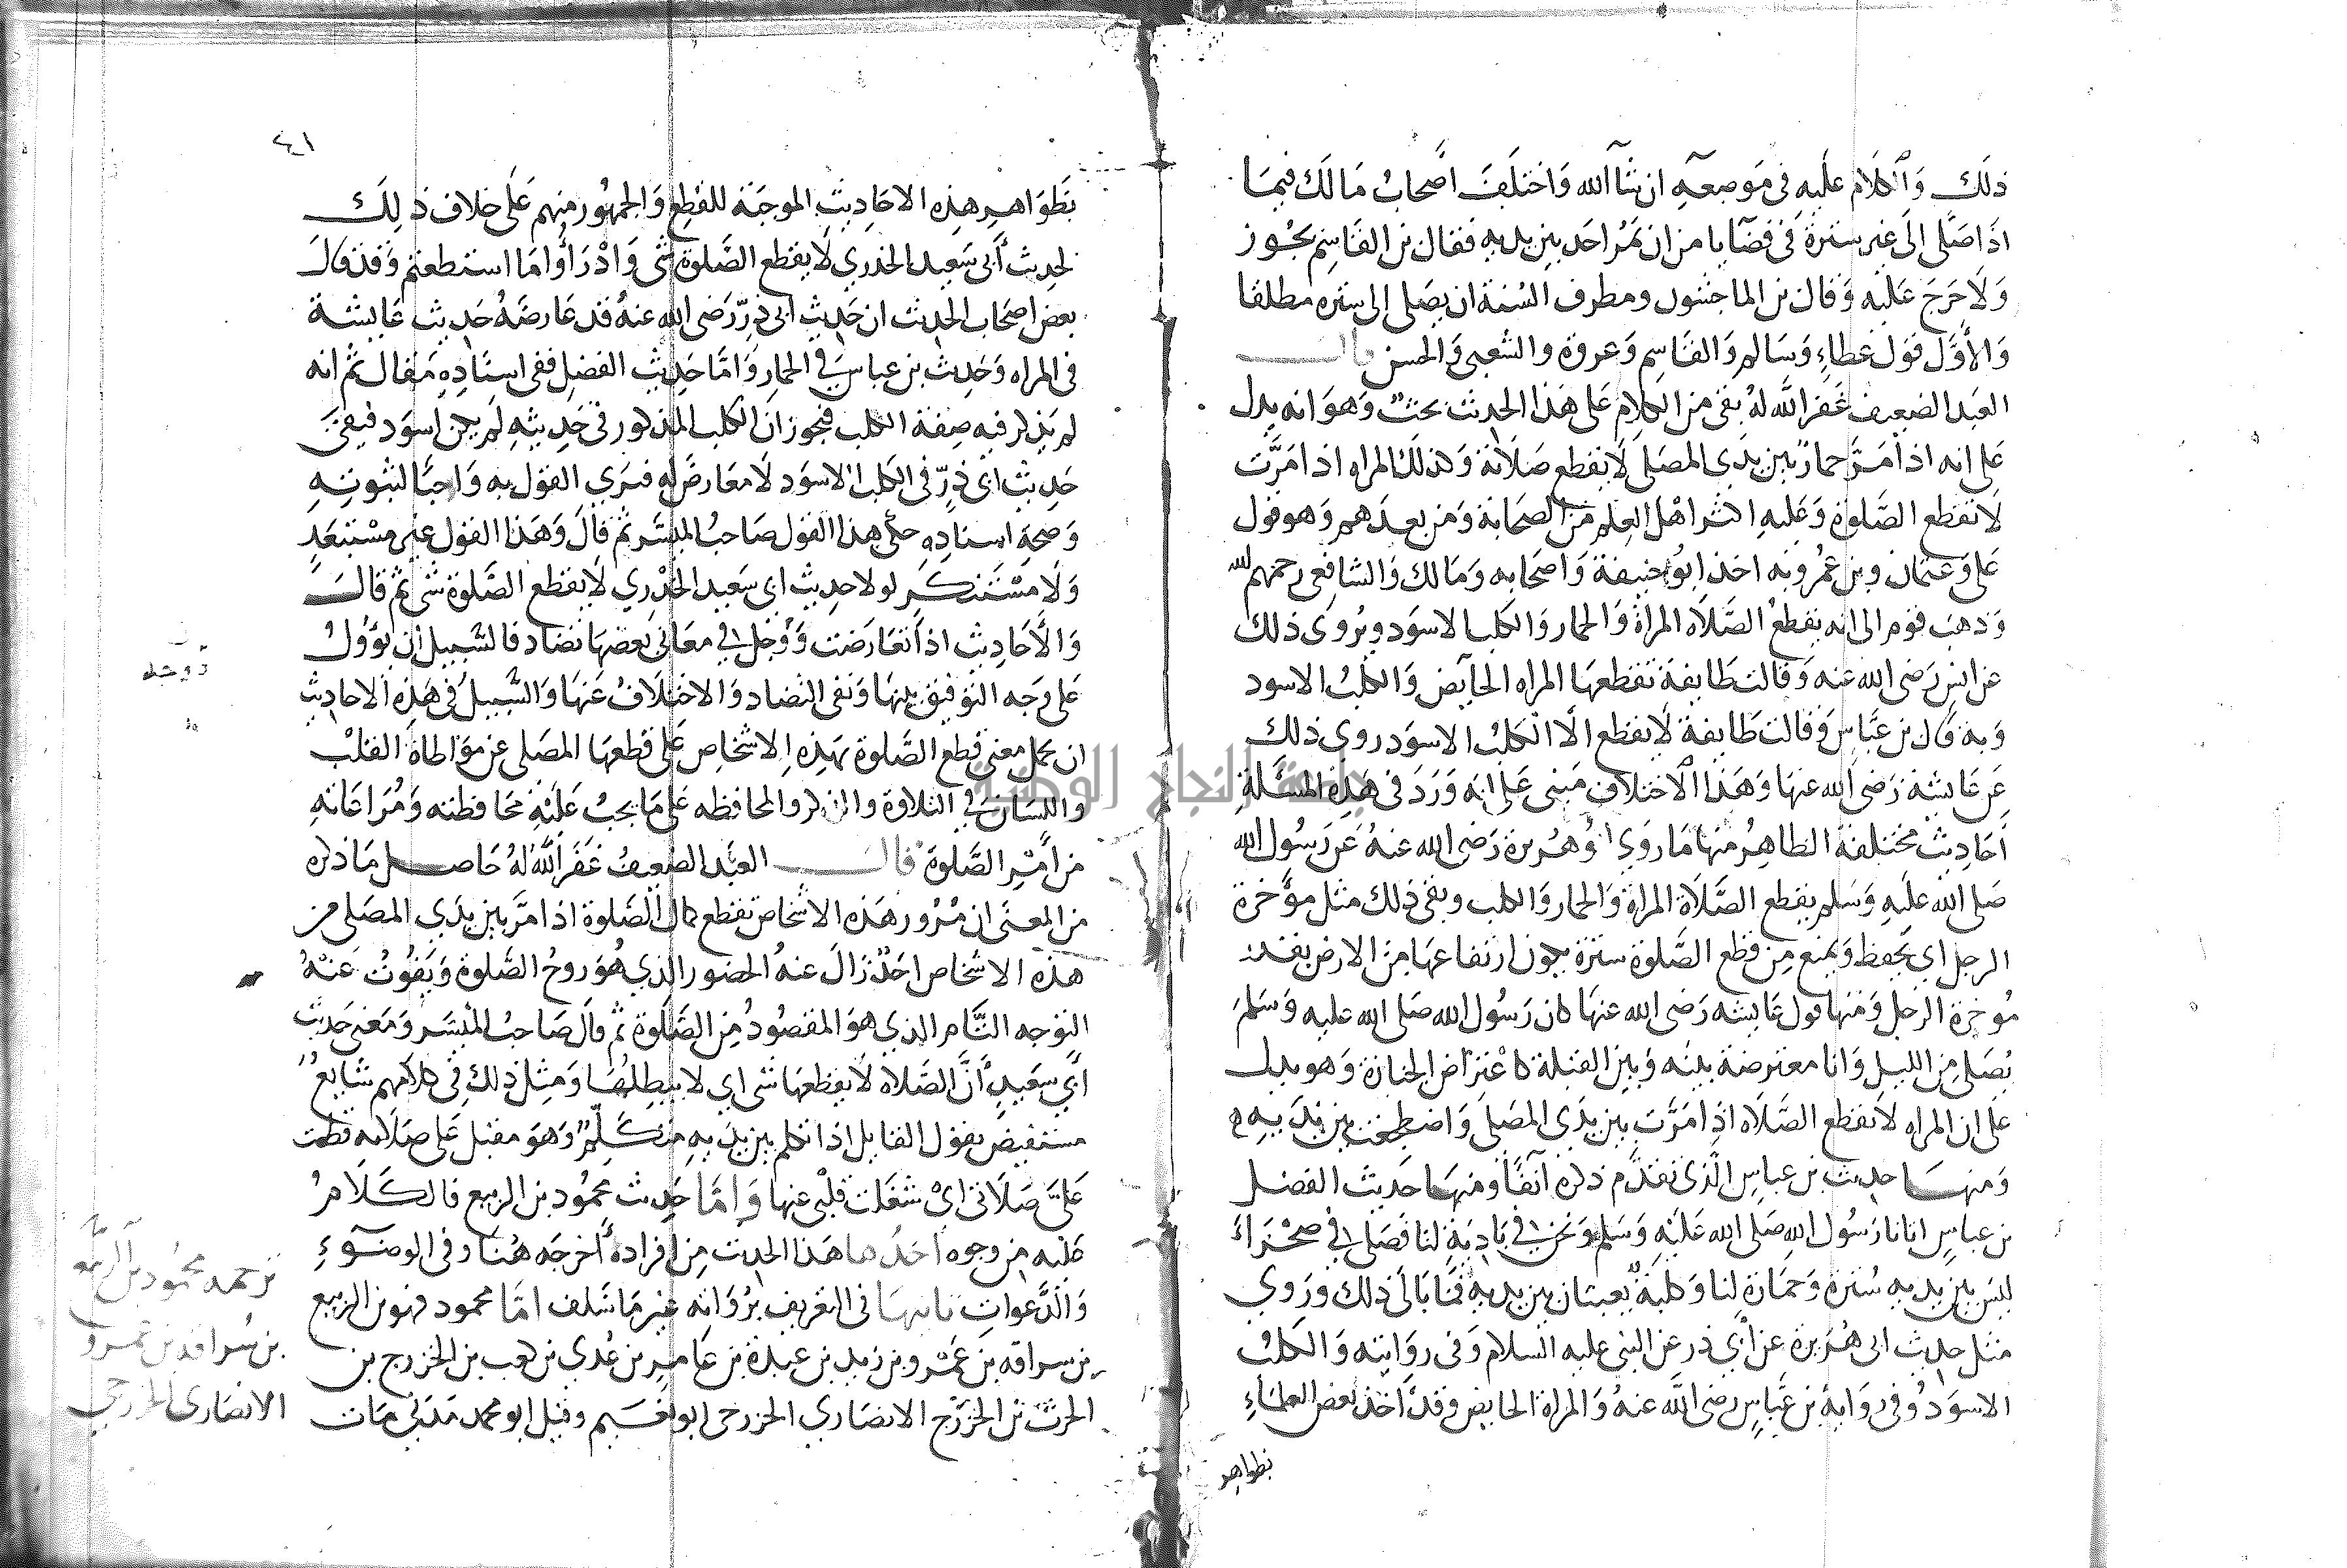 ذلك والكلام عليه في موضعه ان شآ الله واختلف اصحاب مالك فيما
اذا صلى الى غير سترة في فضآ يامن ان يمر احد بين يديه فقال بن القاسم يجوز
ولا حرج عليه وقال بن الماجشون ومطرف السنة ان يصلى إلى ستره مطلقا
والأول قول عطاء وسالم والقاسم وعروة والشعبى والحسن قال
العبد الضعيف غفر الله له بقى من الكلام على هذا الحديث بحث وهو انه يدل
على انه اذا مر حمار بين يدى المصلى لا يقطع صلاته وكذلك المراه اذا مرت
لا تقطع الصلوة وعليه اكثر اهل العلم من الصحابة ومن بعدهم وهو قول
على وعثمان وبن عمر وبه اخذ ابو حنيفة واصحابه ومالك والشافعى رحمهم الله
وذهب قوم الى انه يقطع الصلاه المراة والحمار والكلب الاسود ويروى ذلك
عن انس رضى الله عنه وقالت طايفة تقطعها المراه الحآيض والكلب الاسود
وبه قال بن عباس وقالت طايفة لا يقطع الا الكلب الاسود روى ذلك
عن عايشة رضى الله عنها وهذا الاختلاف مبنى على انه ورد فى هذه المسئلة
احاديث مختلفة الظاهر منها ما روى ابو هريرة رضى الله عنه عن رسول الله
صلى الله عليه وسلم يقطع الصلاة المراة والحمار والكلب ويقى ذلك مثل مؤخرة
الرحل اي يحفظ ويمنع من قطع الصلوة سترة يكون ارتفاعها من الارض بقدر
مؤخرة الرحل ومنها قول عايشه رضى الله عنها كان رسول الله صلى الله عليه وسلم
يصلى من الليل وانا معترضة بينه وبين القبلة كاعتراض الجنازة وهو يدل
على ان المراه لا تقطع الصلاه اذا مرت بين يدى المصلى واضطجعت بين يديه
ومنها حديث بن عباس الذى تقدم ذكره آنفا ومنها حديث الفضل
بن عباس اتانا رسول الله صلى الله عليه وسلم ونحن فى بادية لنا فصلى فى صحراء
ليس بين يديه سترة وحمارة لنا وكلبة يعبثان بين يديه فما بالى ذلك وروي
مثل حديث ابى هريرة عن أبي ذر عن النبى عليه السلام وفى روايته والكلب
الاسود وفى رواية بن عباس رضى الله عنه والمراة الحايض وقد اخذ بعض العلماء
بظواهر
٤١
بظواهر هذه الاحاديث الموجبة للقطع والجمهور منهم على خلاف ذلك
لحديث أبى سعيد الخدري لا يقطع الصلوة شى وادرأوا ما استطعتم وقد قال
بعض اصحاب الحديث ان حديث ابى ذر رضى الله عنه قد عارضه حديث عايشة
فى المراه وحديث بن عباس في الحمار واما حديث الفضل ففى اسناده مقال ثم انه
لم يذكر فيه صفة الكلب فيجوز ان الكلب المذكور فى حديثه لم يكن اسود فبقى
حديث ابى ذر فى الكلب الاسود لا معارض له فنرى القول به واجبا لثبوته
وصحة اسناده حكى هذا القول صاحب الميسر ثم قال وهذا القول غير مستبعد
ولا مستنكر لولا حديث ابى سعيد الخدري لا يقطع الصلوة شى ثم قال
والأحاديث اذا تعارضت ووجد فى معانى بعضها تضاد فالسبيل ان يؤول
على وجه التوفيق بينها ونفى التضاد والاختلاف عنها والسبيل فى هذه الاحاديث
ان يحمل معنى قطع الصلوة بهذه الاشخاص على قطعها المصلى عن مواطاة القلب
واللسان في التلاوة والذكر والمحافظه على ما يجب عليه محافظته ومراعاته
من امر الصلوة قال العبد الضعيف غفر الله له حاصل ما ذكره
من المعنى ان مرور هذه الاشخاص تقطع كمال الصلوة اذا مر بين يدى المصلى من
هذه الاشخاص احد زال عنه الحضور الذي هو روح الصلوة ويفوت عنه
التوجه التام الذي هو المقصود من الصلوة ثم قال صاحب الميسر ومعنى حديث
أبي سعيد أن الصلاه لا يقطعها شى اي لا يبطلها ومثل ذلك فى كلامهم شايع
مستفيض يقول القايل اذا تكلم بين يديه متكلم وهو مقبل على صلاته قطعت
على صلاتى اى شغلت قلبى عنها واما حديث محمود بن الربيع فالكلام
عليه من وجوه احدها هذا الحديث من افراده أخرجه هنا وفى الوضوء
والدعوات ثانيها فى التعريف برواته غير ما سلف اما محمود فهو بن الربيع
بن سراقه بن عمرو بن زيد بن عبدة بن عامر بن عدى بن كعب بن الخزرج بن
الحرث بن الخزرج الانصاري الخزرجى ابو نعيم وقيل ابو محمد مدني مات
ووجد
ترجمه محمود بن الربيع
بن سراقه بن عمرو
الانصارى الخزرجي
جامعة النجاح الوطنية